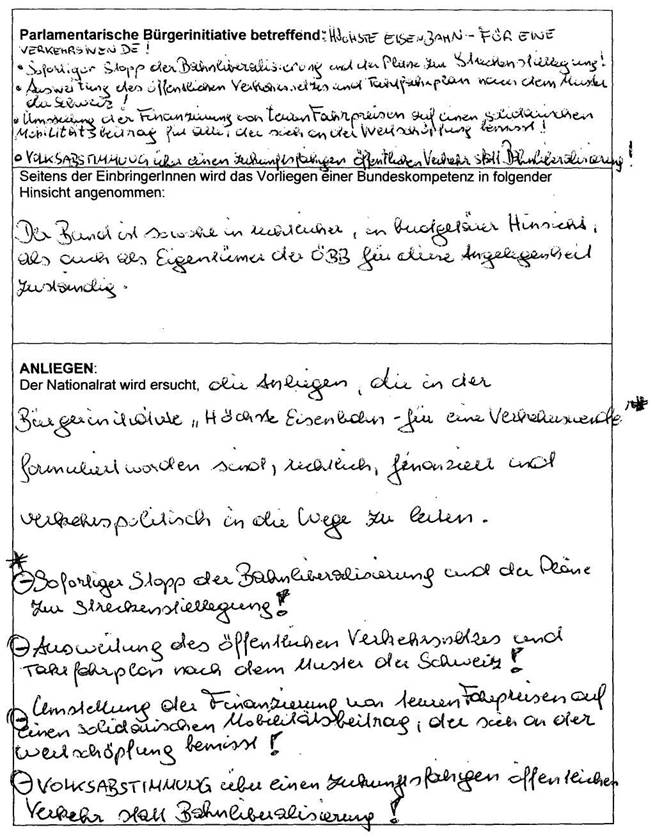 Parlamentarische Bürgerinitiative betreffend: HÖCHSTE EISENBAHN – FÜR EINE
VERKEHRSWENDE!
• Sofortiger Stopp der Bahnliberalisierung und der Pläne zur Streckenstillegung!
• Ausweitung des öffentlichen Verkehrsnetzes und Taktfahrplan nach dem Muster
der Schweiz!
• Umstellung der Finanzierung von teuren Fahrpreisen auf einen solidarischen
Mobilitätsbeitrag für alle, der sich an der Wertschöpfung bemisst!
• VOLKSABSTIMMUNG über einen zukunftsfähigen öffentlichen Verkehr statt Bahnliberalisierung!
Seitens der EinbringerInnen wird das Vorliegen einer Bundeskompetenz in folgender
Hinsicht angenommen:
Der Bund ist sowohl in rechtlicher, in budgetärer Hinsicht,
als auch als Eigentümer der ÖBB für diese Angelegenheit
zuständig.
ANLIEGEN:
Der Nationalrat wird ersucht, die Anliegen, die in der
Bürgerinitiative „Höchste Eisenbahn – für eine Verkehrswende" *
formuliert worden sind, rechtlich, finanziell und
verkehrspolitisch in die Wege zu leiten.
*
– Sofortiger Stopp der Bahnliberalisierung und der Pläne
zur Streckenstillegung!
– Ausweitung des öffentlichen Verkehrsnetzes und
Taktfahrplan nach dem Muster der Schweiz!
– Umstellung der Finanzierung von teuren Fahrpreisen auf
einen solidarischen Mobilitätsbeitrag, der sich an der
Wertschöpfung bemisst!
– VOLKSABSTIMMUNG über einen zukunftsfähigen öffentlichen
Verkehr statt Bahnliberalisierung!